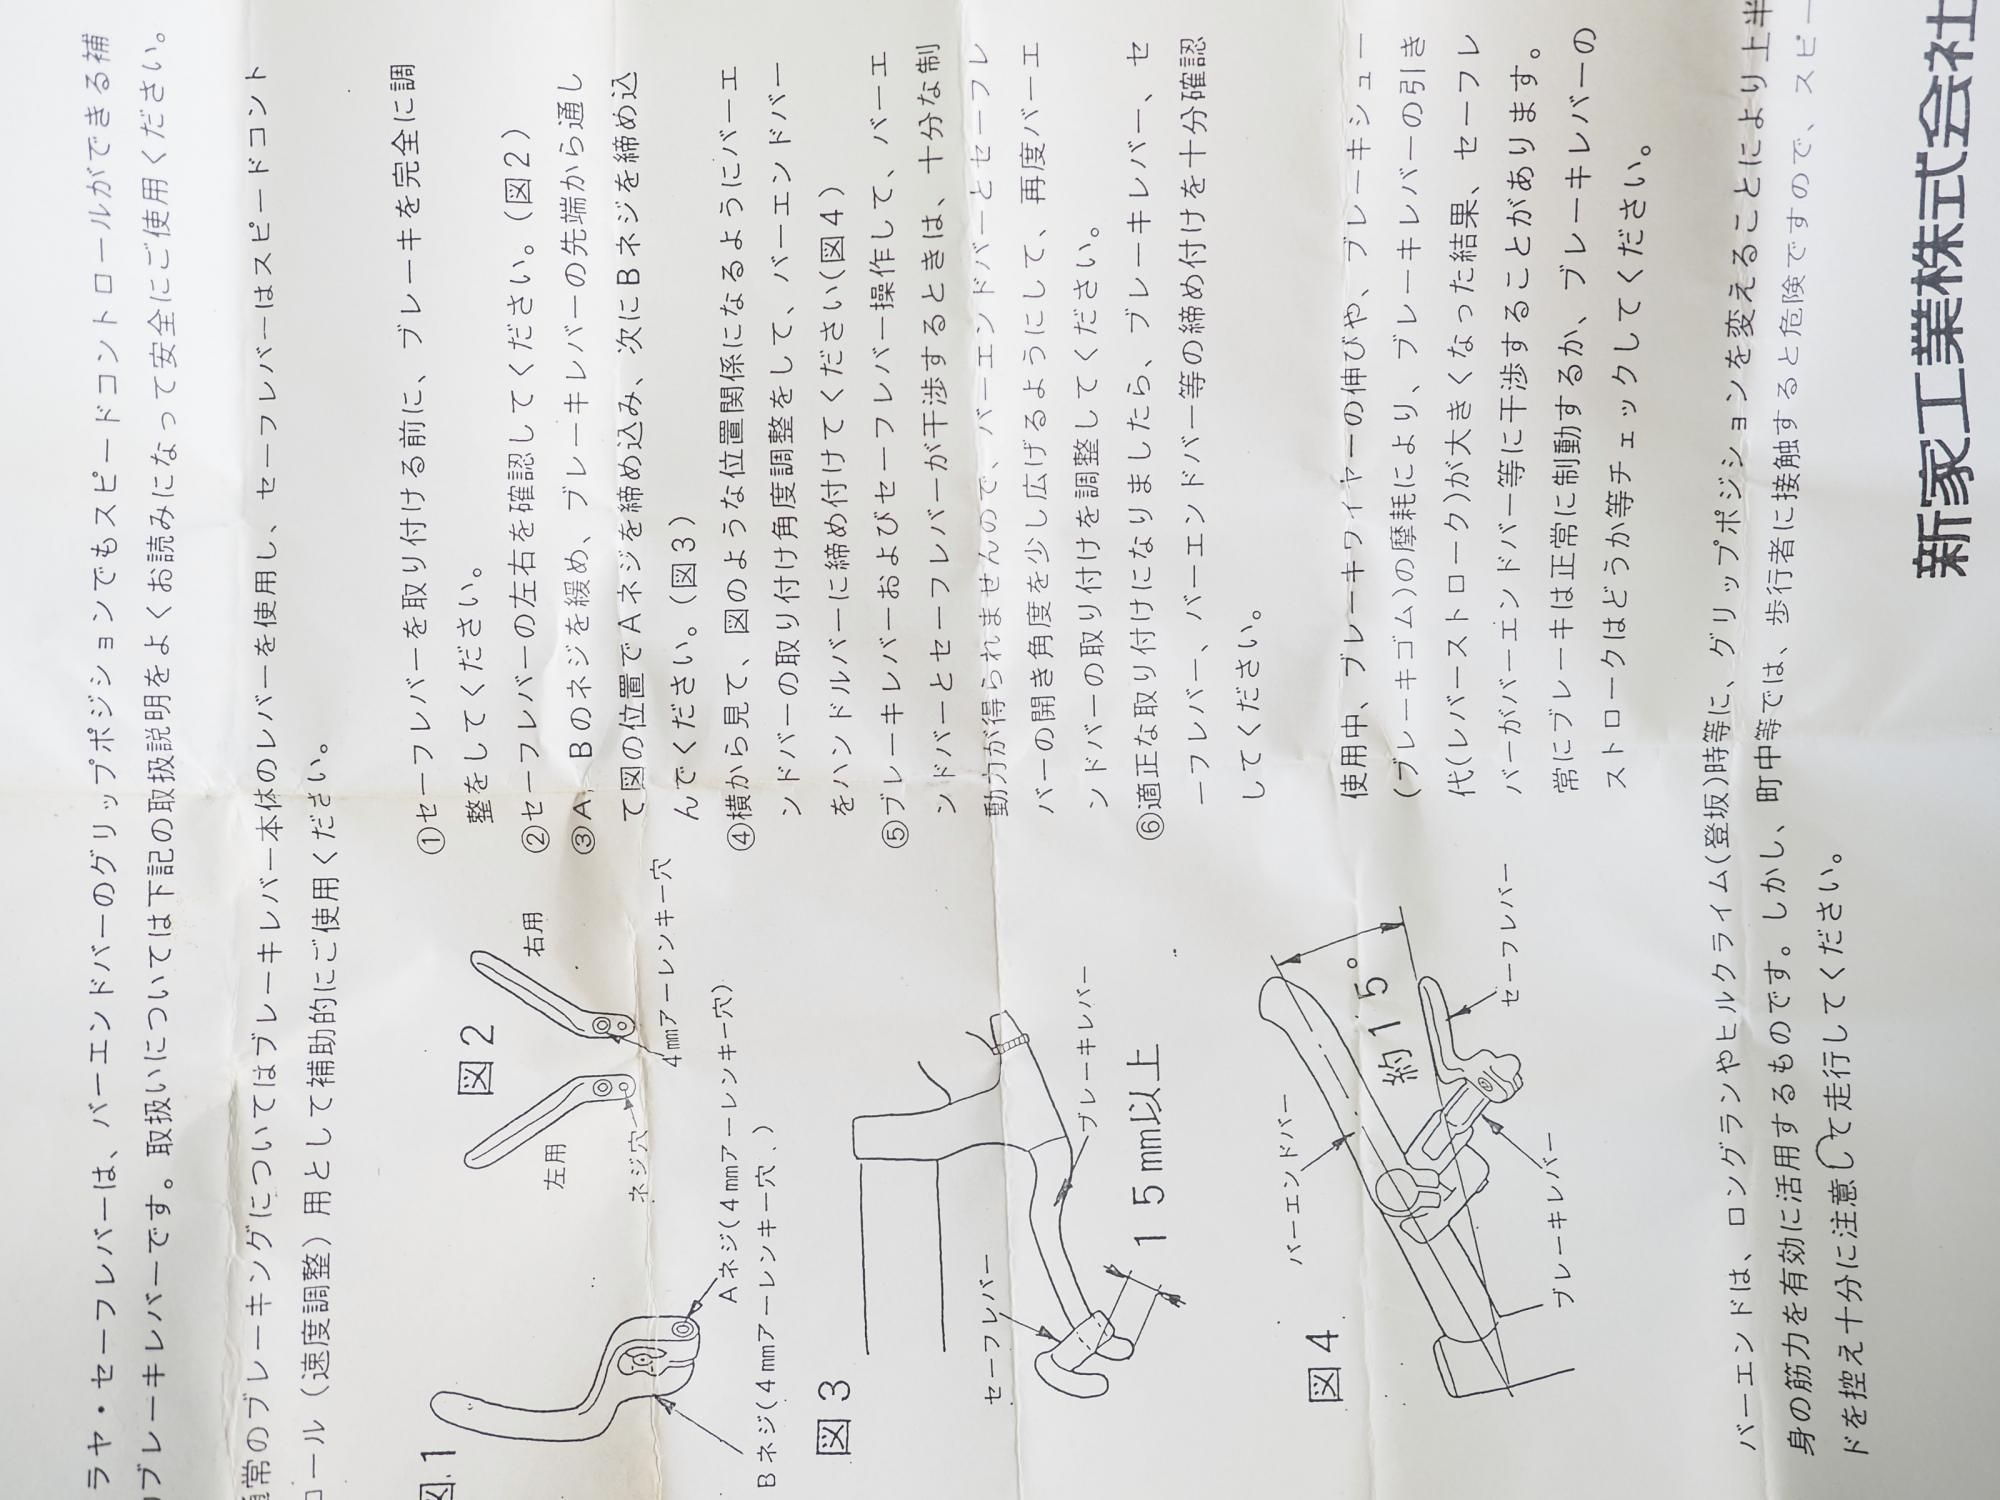 ラヤ・セーフレバーは、バーエンドバーのグリップポジションでもスピードコントロールができる補
ブレーキレバーです。取扱いについては下記の取扱説明をよくお読みになって安全にご使用ください。
通常のブレーキングについてはブレーキレバー本体のレバーを使用し、セーフレバーはスピードコント
ロール（速度調整）用として補助的にご使用ください。
図1
Aネジ(4㎜アーレンキー穴)
Bネジ(4㎜アーレンキー穴、)
図2
左用
右用
ネジ穴
4㎜アーレンキー穴
図3
セーフレバー
ブレーキレバー
15㎜以上
図4
バーエンドバー
約15°
ブレーキレバー
セーフレバー
①セーフレバーを取り付ける前に、ブレーキを完全に調
整をしてください。
②セーフレバーの左右を確認してください。(図2)
③A,Bのネジを緩め、ブレーキレバーの先端から通し
て図の位置でAネジを締め込み、次にBネジを締め込
んでください。(図3)
④横から見て、図のような位置関係になるようにバーエ
ンドバーの取り付け角度調整をして、バーエンドバー
をハンドルバーに締め付けてください(図4)
⑤ブレーキレバーおよびセーフレバー操作して、バーエ
ンドバーとセーフレバーが干渉するときは、十分な制
動力が得られませんので、バーエンドバーとセーフレ
バーの開き角度を少し広げるようにして、再度バーエ
ンドバーの取り付けを調整してください。
⑥適正な取り付けになりましたら、ブレーキレバー、セ
ーフレバー、バーエンドバー等の締め付けを十分確認
してください。
使用中、ブレーキワイヤーの伸びや、ブレーキシュー
(ブレーキゴム)の摩耗により、ブレーキレバーの引き
代(レバーストローク)が大きくなった結果、セーフレ
バーがバーエンドバー等に干渉することがあります。
常にブレーキは正常に制動するか、ブレーキレバーの
ストロークはどうか等チェックしてください。
バーエンドは、ロングランやヒルクライム(登坂)時等に、グリップポジションを変えることにより上半
身の筋力を有効に活用するものです。しかし、町中等では、歩行者に接触すると危険ですので、スピー
ドを控え十分に注意して走行してください。
新家工業株式会社